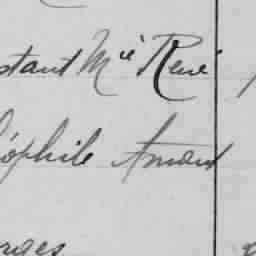 stant Mie René
éophile Amand
rges